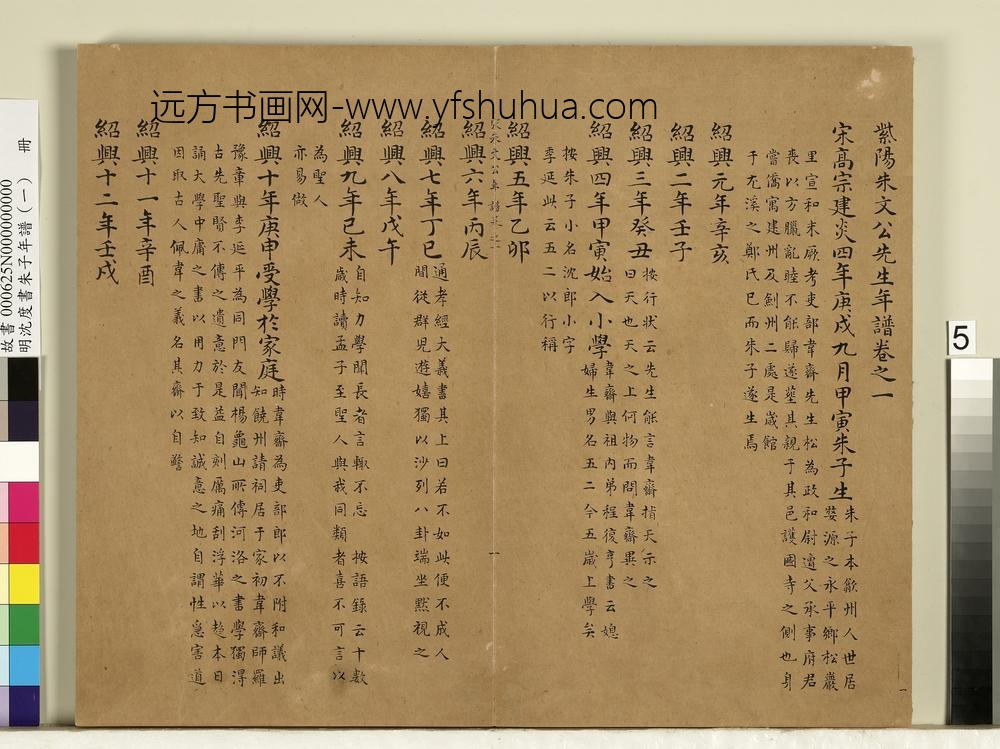 远方书画网-www.yfshuhua.com
紫陽朱文公先生年譜卷之一
宋高宗建炎四年庚戌九月甲寅朱子生
朱子本歙州人世居
婺源之永平鄉松巖
里宣和末厥考吏部韋齋先生松為政和尉遭父承事府君
喪以方臘亂睦不能歸遂塟其親于其邑護國寺之側也身
嘗僑寓建州及劍州二處是歲館
于尤溪之鄭氏已而朱子遂生焉
紹興元年辛亥
紹興二年壬子
紹興三年癸丑
按行狀云先生能言韋齋指天示之
曰天也天之上何物而問韋齋異之
紹興四年甲寅始入小學
韋齋與祖內弟程復亨書云媳
婦生男名五二今五歲上學矣
按朱子小名沈郎小字
季延此云五二以行稱
紹興五年乙卯
紹興六年丙辰
紹興七年丁巳
通孝經大義書其上曰若不如此便不成人
間從群兒遊嬉獨以沙列八卦端坐默視之
紹興八年戊午
紹興九年己未
自知力學聞長者言輙不忘 按語錄云十數
歲時讀孟子至聖人與我同類者喜不可言以
為聖人
亦易做
紹興十年庚申受學於家庭
時韋齋為吏部郎以不附和議出
知饒州請祠居于家初韋齋師羅
豫章與李延平為同門友聞楊龜山所傳河洛之書學獨得
古先聖賢不傳之遺意於是益自刻厲痛刮浮華以趍本日
誦大學中庸之書以用力于致知誠意之地自謂性急害道
因取古人佩韋之義名其齋以自警
紹興十一年辛酉
紹興十二年壬戌
故書 000625N000000000
明沈度書朱子年譜(一) 冊
5